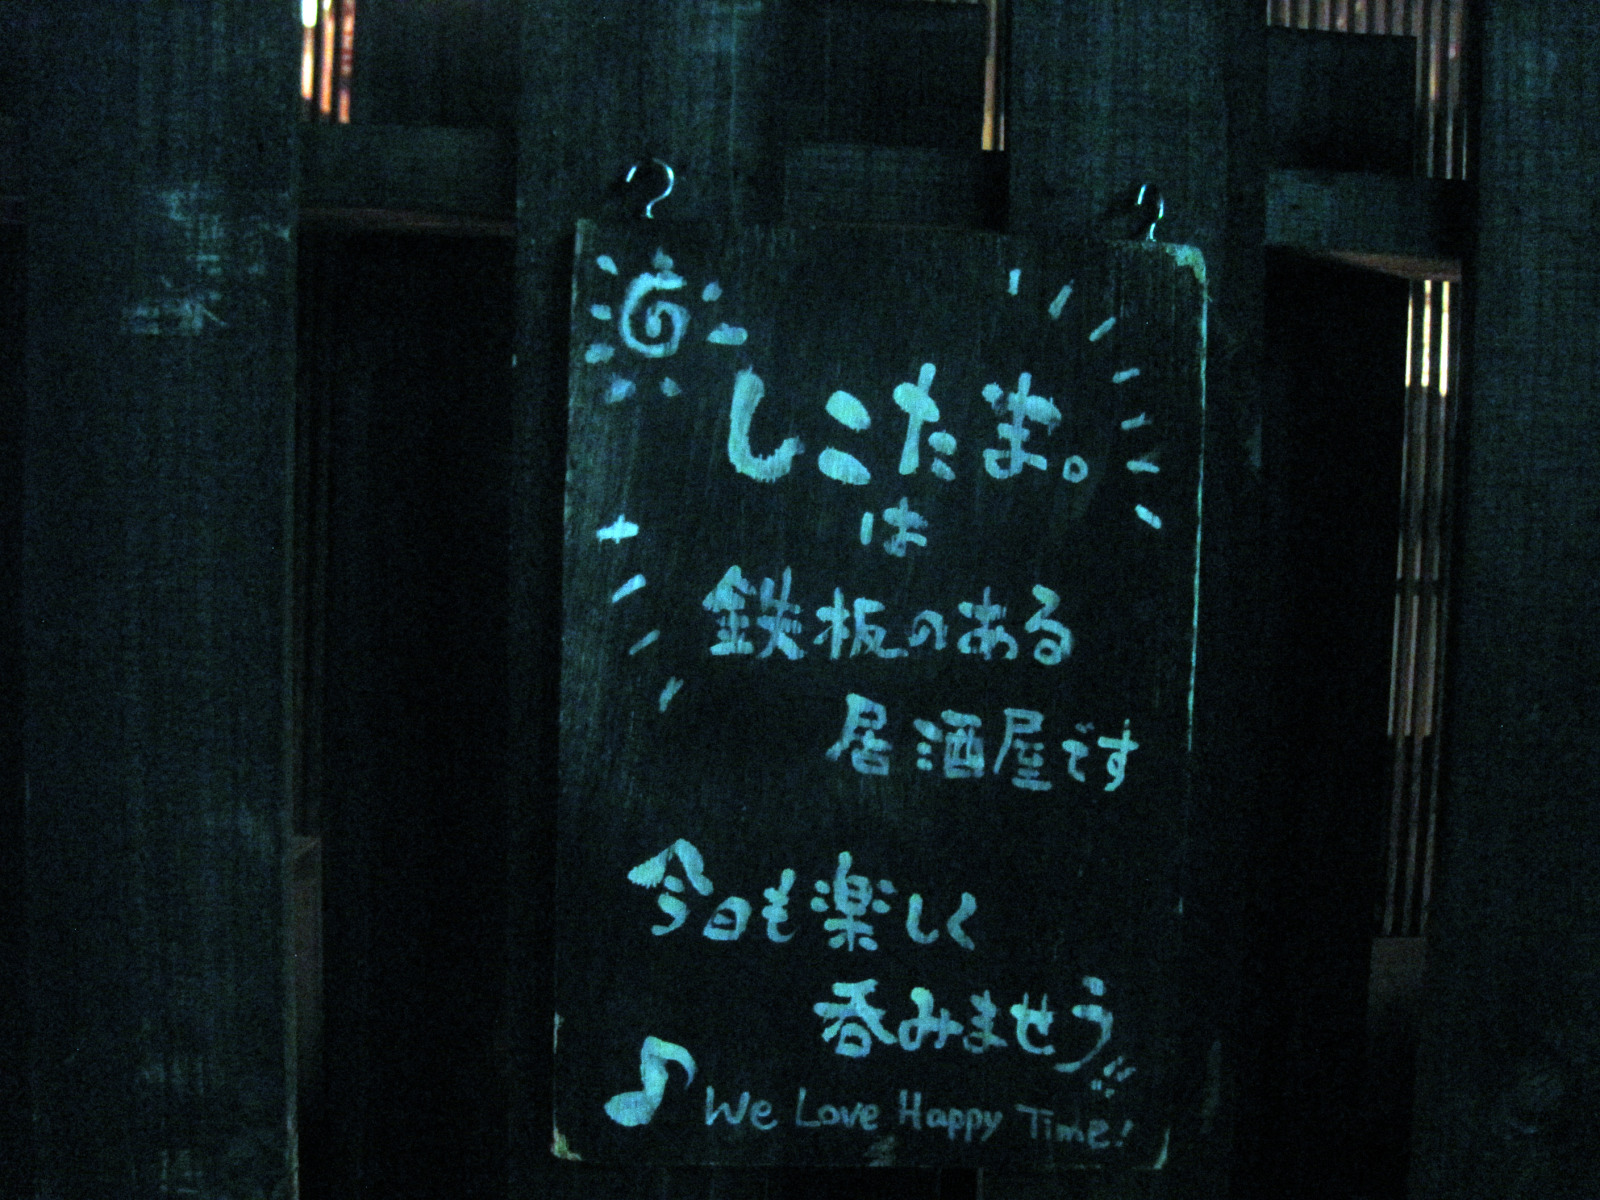 しこたま。
は
鉄板のある
居酒屋です
今日も楽しく
呑みませう!!
We Love Happy Time!